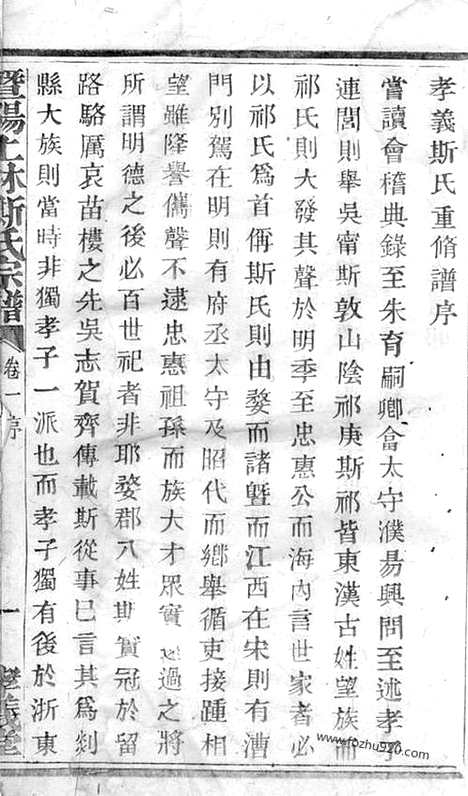 孝義斯氏重脩譜序
嘗讀會稽典錄至朱育嗣卿會太守濮昜興問至述孝子
連閭則舉吳甯斯敦山陰祁庚斯祁皆東漢古姓望族而
祁氏則大發其聲於明季至忠惠公而海內言世家者必
以祁氏爲首偁斯氏則由婺而諸曁而江西在宋則有漕
門別駕在明則有府丞太守及昭代而鄉舉循吏接踵相
望雖隆譽儁聲不逮忠惠祖孫而族大才眾實過之將
所謂明德之後必百世祀者非耶婺郡八姓斯實冠於留
路駱厲哀苗樓之先吳志賀齊傳載斯從事巳言其爲剡
縣大族則當時非獨孝子一派也而孝子獨有後於浙東
暨陽上林斯氏宗譜
卷一序
一
孝義堂
www.fozhu920.com